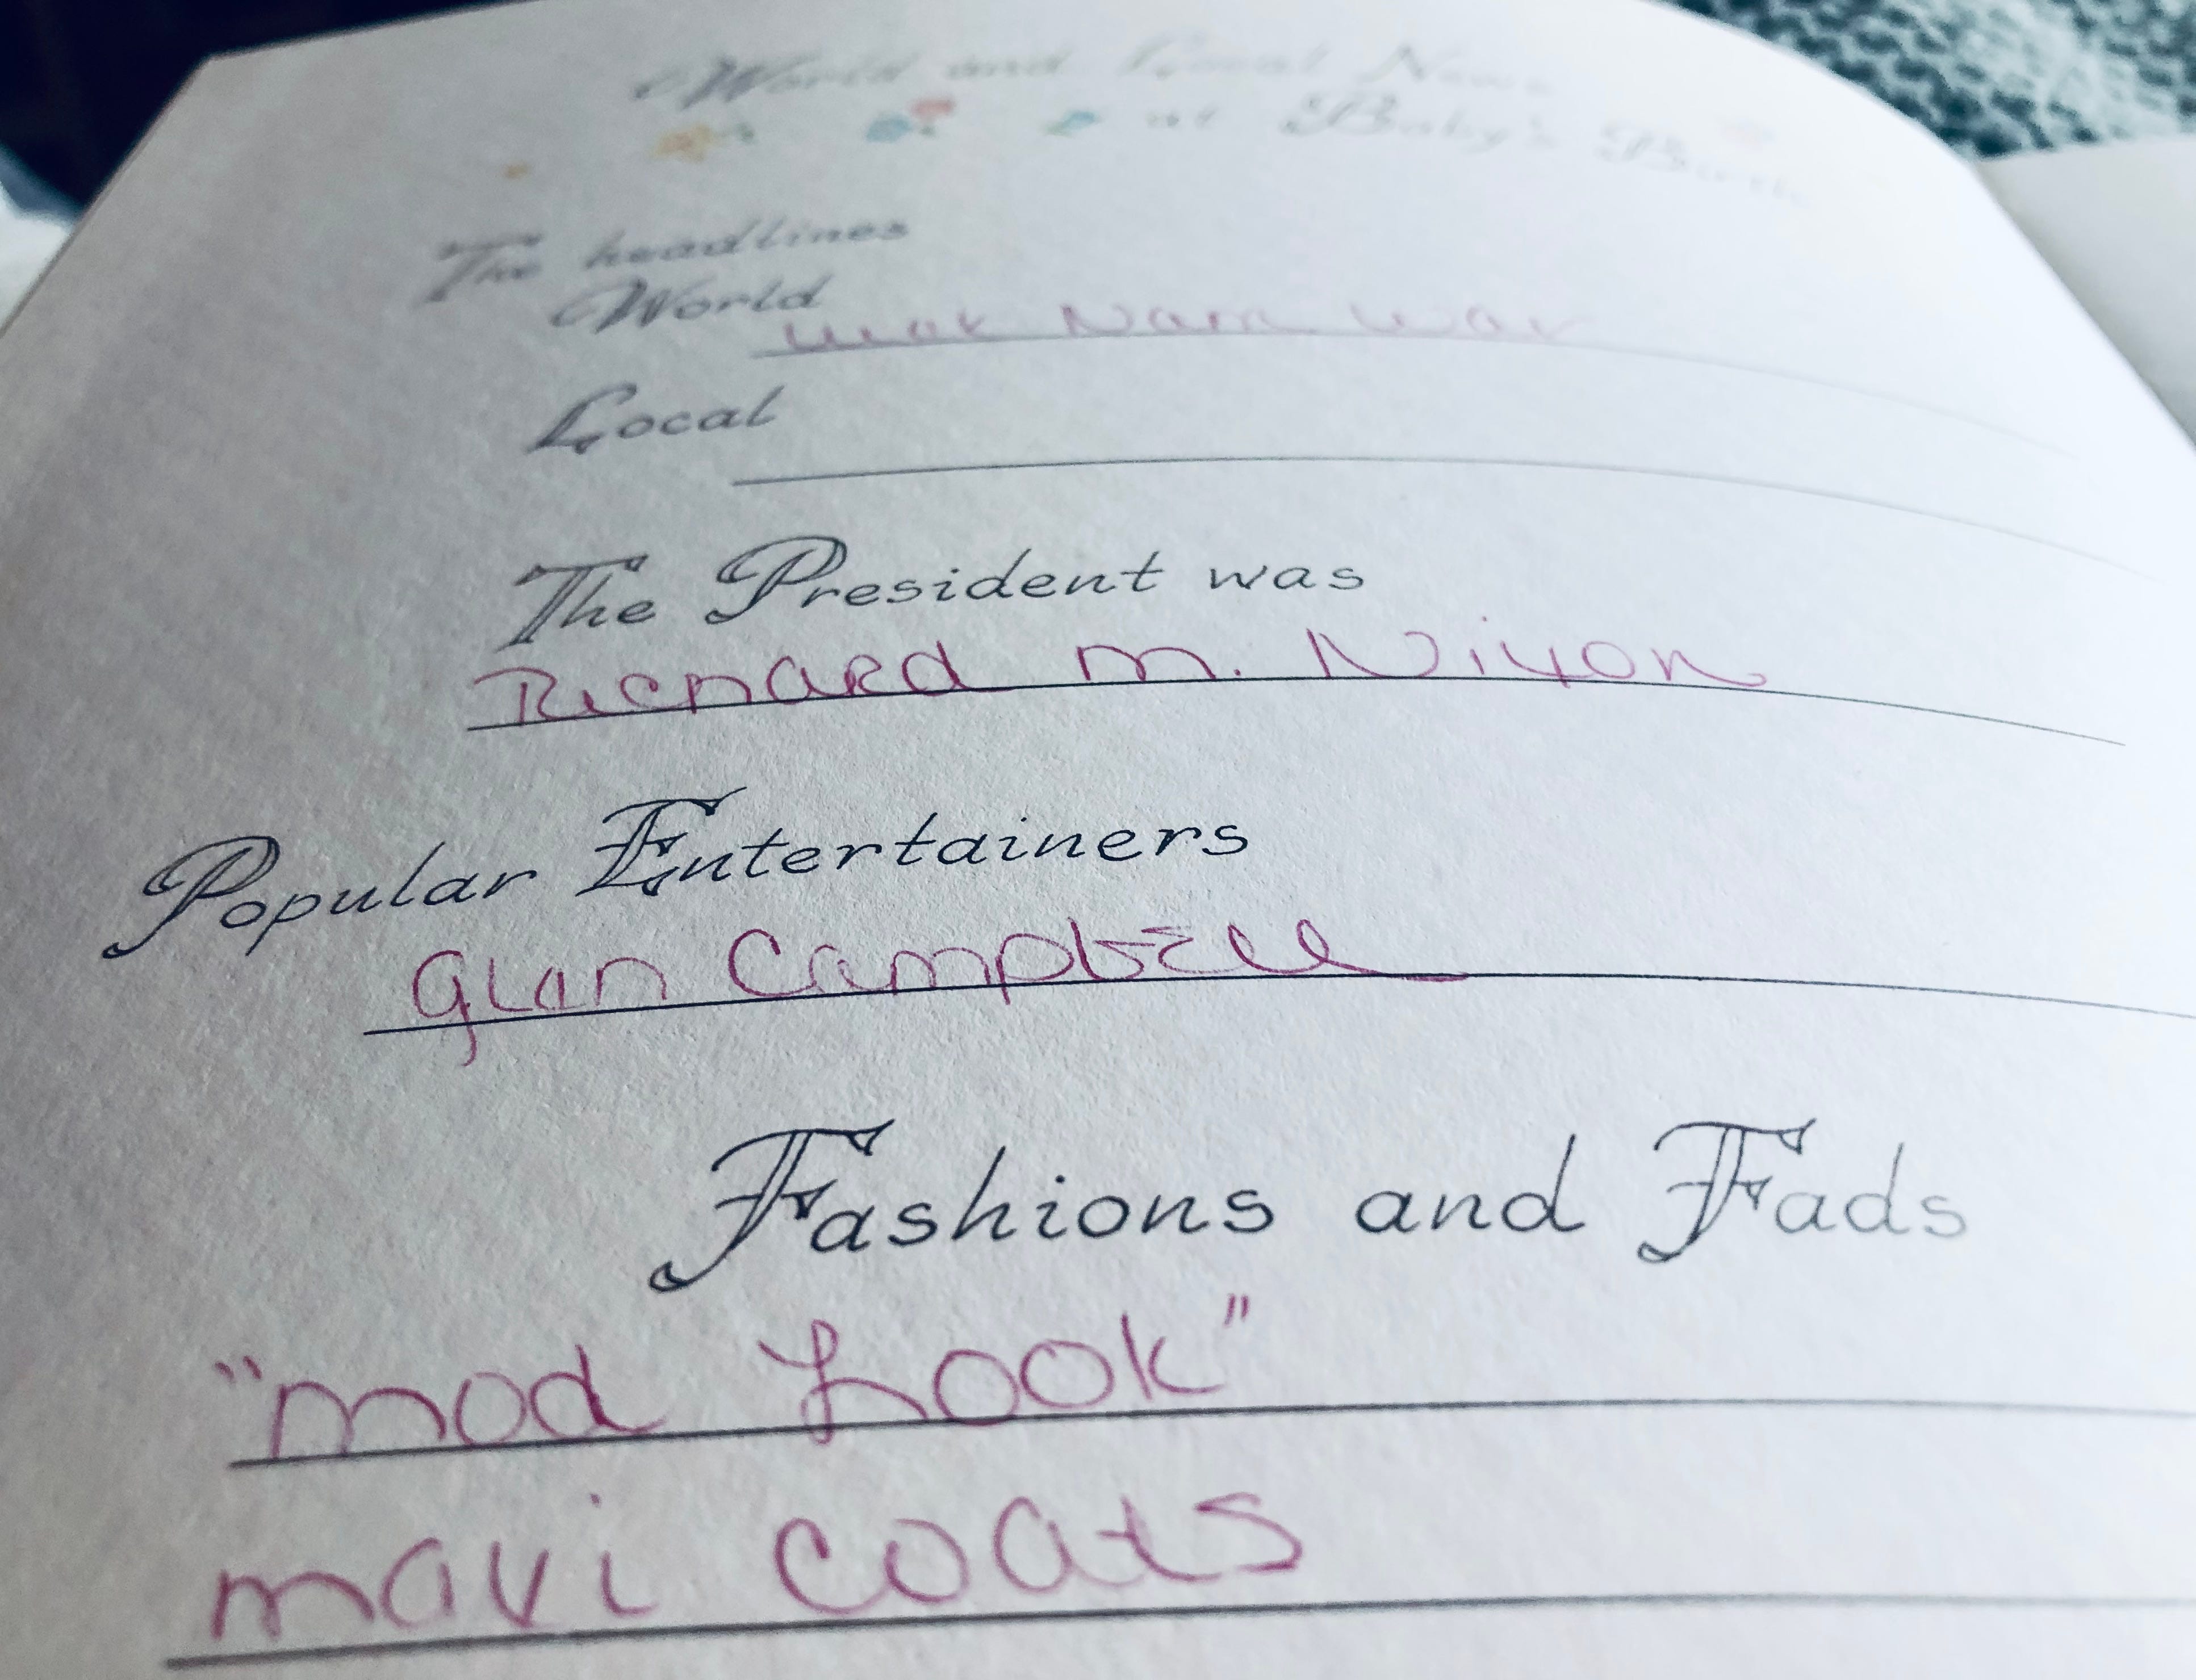 World and Local News
at Baby's Birth
The headlines
World
Nam War
Local
The President was
Richard M. Nixon
Popular Entertainers
Glan Campbell
Fashions and Fads
"mod Look"
mavi coats